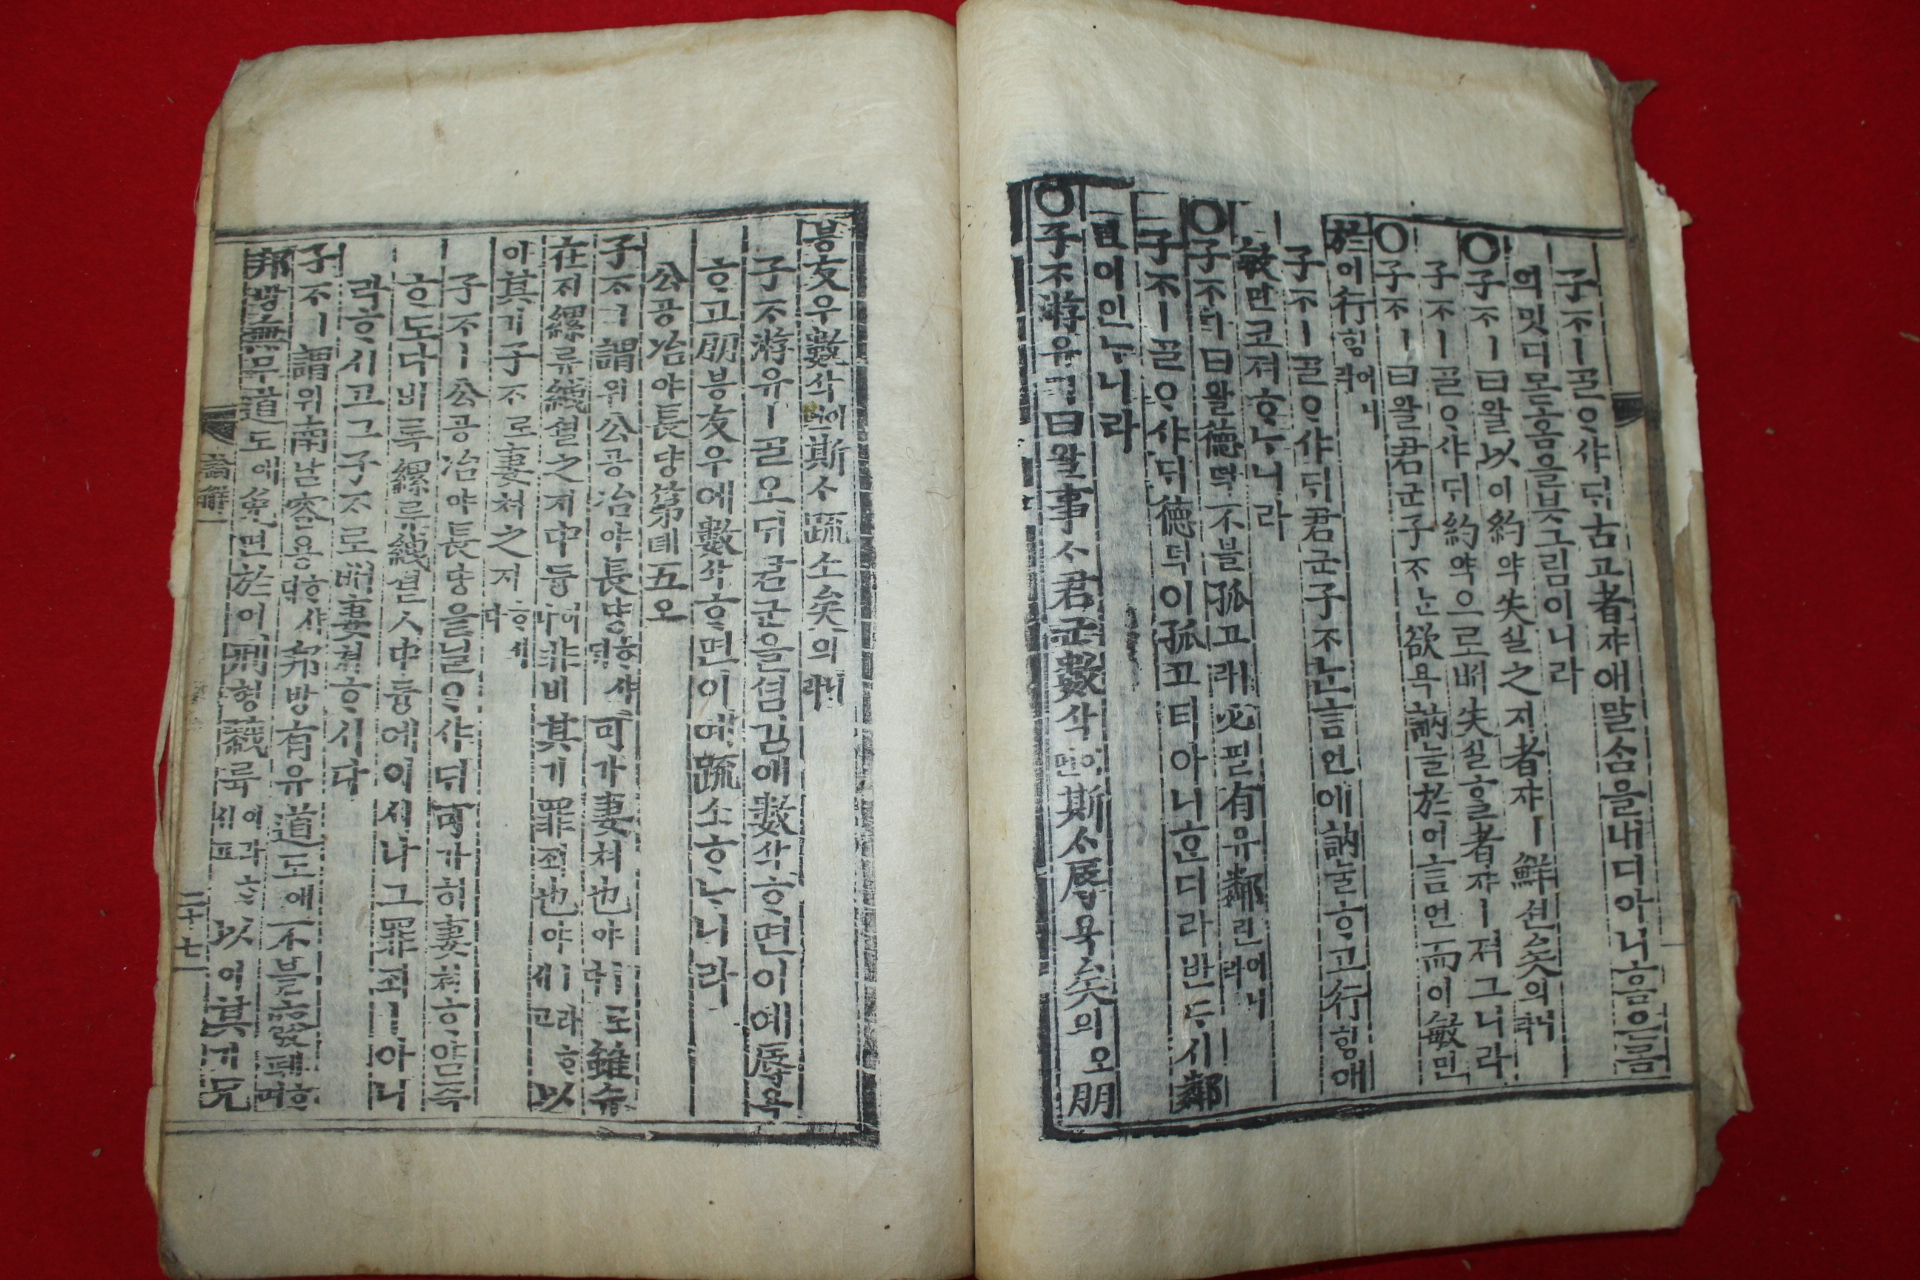 子ᄌᆞㅣ골ᄋᆞ샤ᄃᆡ古고者쟈애말ᄉᆞᆷ을내디아니홈은몸
의밋디몯홈을븟그림이니라
○子ᄌᆞㅣ曰왈以이約약失실之지者쟈ㅣ鮮션矣의니라
子ᄌᆞㅣ골ᄋᆞ샤ᄃᆡ約약으로ᄡᅥ失실ᄒᆞᆯ者쟈ㅣ젹그니라
○子ᄌᆞㅣ曰왈君군子ᄌᆞᄂᆞᆫ欲욕訥눌於어言언而이敏민
於어行ᄒᆡᆼ이니라
子ᄌᆞㅣ골ᄋᆞ샤ᄃᆡ君군子ᄌᆞᄂᆞᆫ言언에訥눌ᄒᆞ고行ᄒᆡᆼ애
敏민코져ᄒᆞᄂᆞ니라
○子ᄌᆞㅣ曰왈德덕不블孤고ㅣ라必필有유鄰린이니라
子ᄌᆞㅣ골ᄋᆞ샤ᄃᆡ德덕이孤고티아니ᄒᆞᆫ디라반ᄃᆞ시鄰
린이인ᄂᆞ니라
○子ᄌᆞ游유ㅣ曰왈事ᄉᆞ君군數삭이면斯ᄉᆞ辱욕矣의오朋
븡友우數삭이면斯ᄉᆞ疏소矣의니라
子ᄌᆞ游유ㅣ골오ᄃᆡ군을셤김애數삭ᄒᆞ면이예辱욕
ᄒᆞ고朋븡友우에數삭ᄒᆞ면이예疏소ᄒᆞᄂᆞ니라
公공冶야長댱第뎨五오
子ᄌᆞㅣ謂위公공冶야長댱ᄒᆞ샤ᄃᆡ可가妻쳐也야ㅣ로다雖슈
在ᄌᆡ縲류絏셜之지中듕이나非비其기罪죄也야ㅣ라ᄒᆞ시고以
이其기子ᄌᆞ로妻쳐之지ᄒᆞ시다
子ᄌᆞㅣ公공冶야長댱을닐ᄋᆞ샤ᄃᆡ可가히妻쳐ᄒᆞ얌즉
ᄒᆞ도다비록縲류絏셜人中듕에이시나그罪죄ㅣ아니
라ᄒᆞ시고그子ᄌᆞ로ᄡᅥ妻쳐ᄒᆞ시다
子ᄌᆞㅣ謂위南남容용ᄒᆞ샤ᄃᆡ邦방有유道도애不블廢폐ᄒᆞ며
邦방無무道도애免면於어刑형戮륙이라ᄒᆞ시고以이其기兄
論解一
二十七